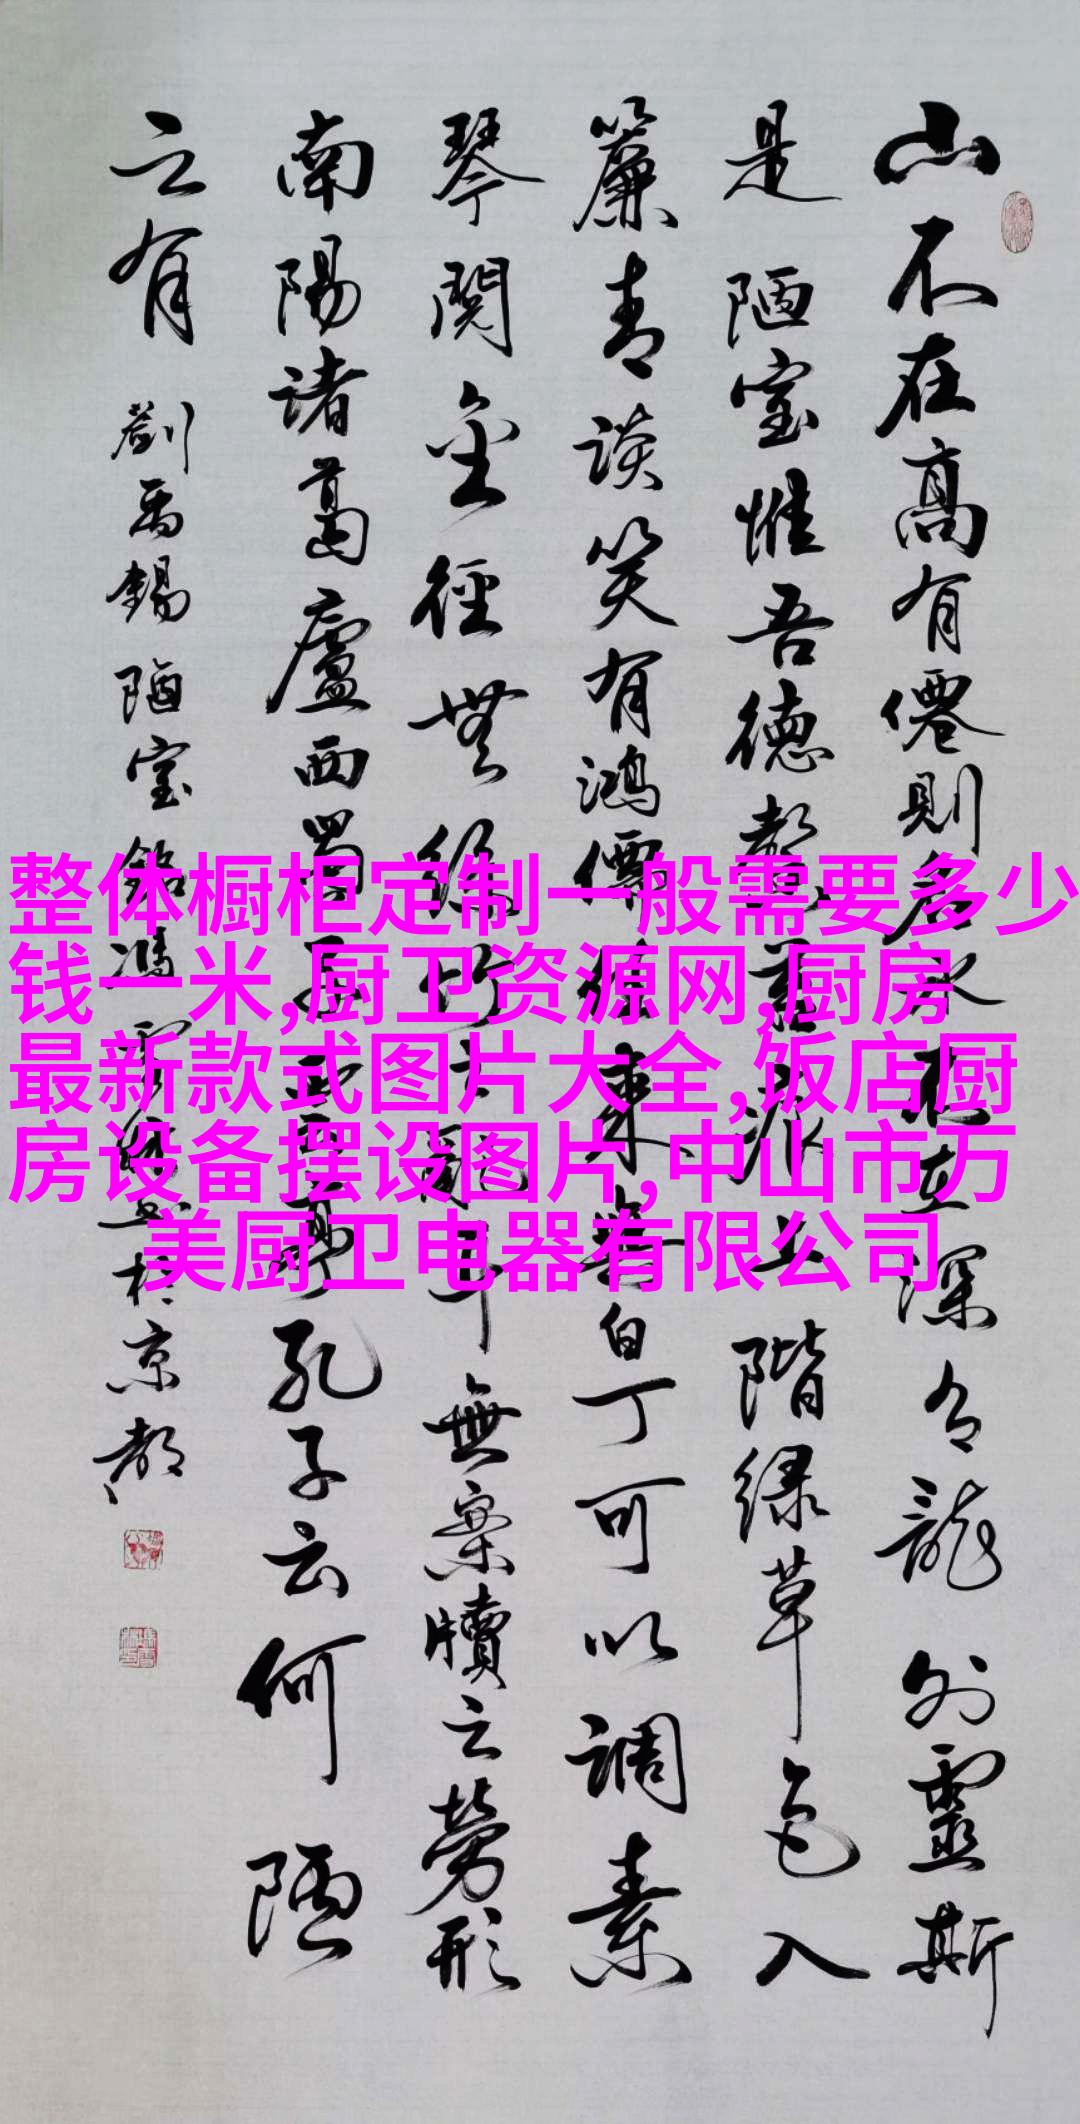 山不在高有僊則名水不在深有龍則靈斯
是陋室惟吾德馨苔痕上階绿草色入
簾青談笑有鴻儒往来無白丁可以調素
琴閱金徑無絲竹之亂耳無案牘之勞形
南陽諸葛廬西蜀子雲亭孔子云何陋
之有 劉禹錫陋室銘馮雪於京都
整体橱柜定制一般需要多少
钱一米,厨卫资源网,厨房
最新款式图片大全,饭店厨
房设备摆设图片,中山市万
美厨卫电器有限公司